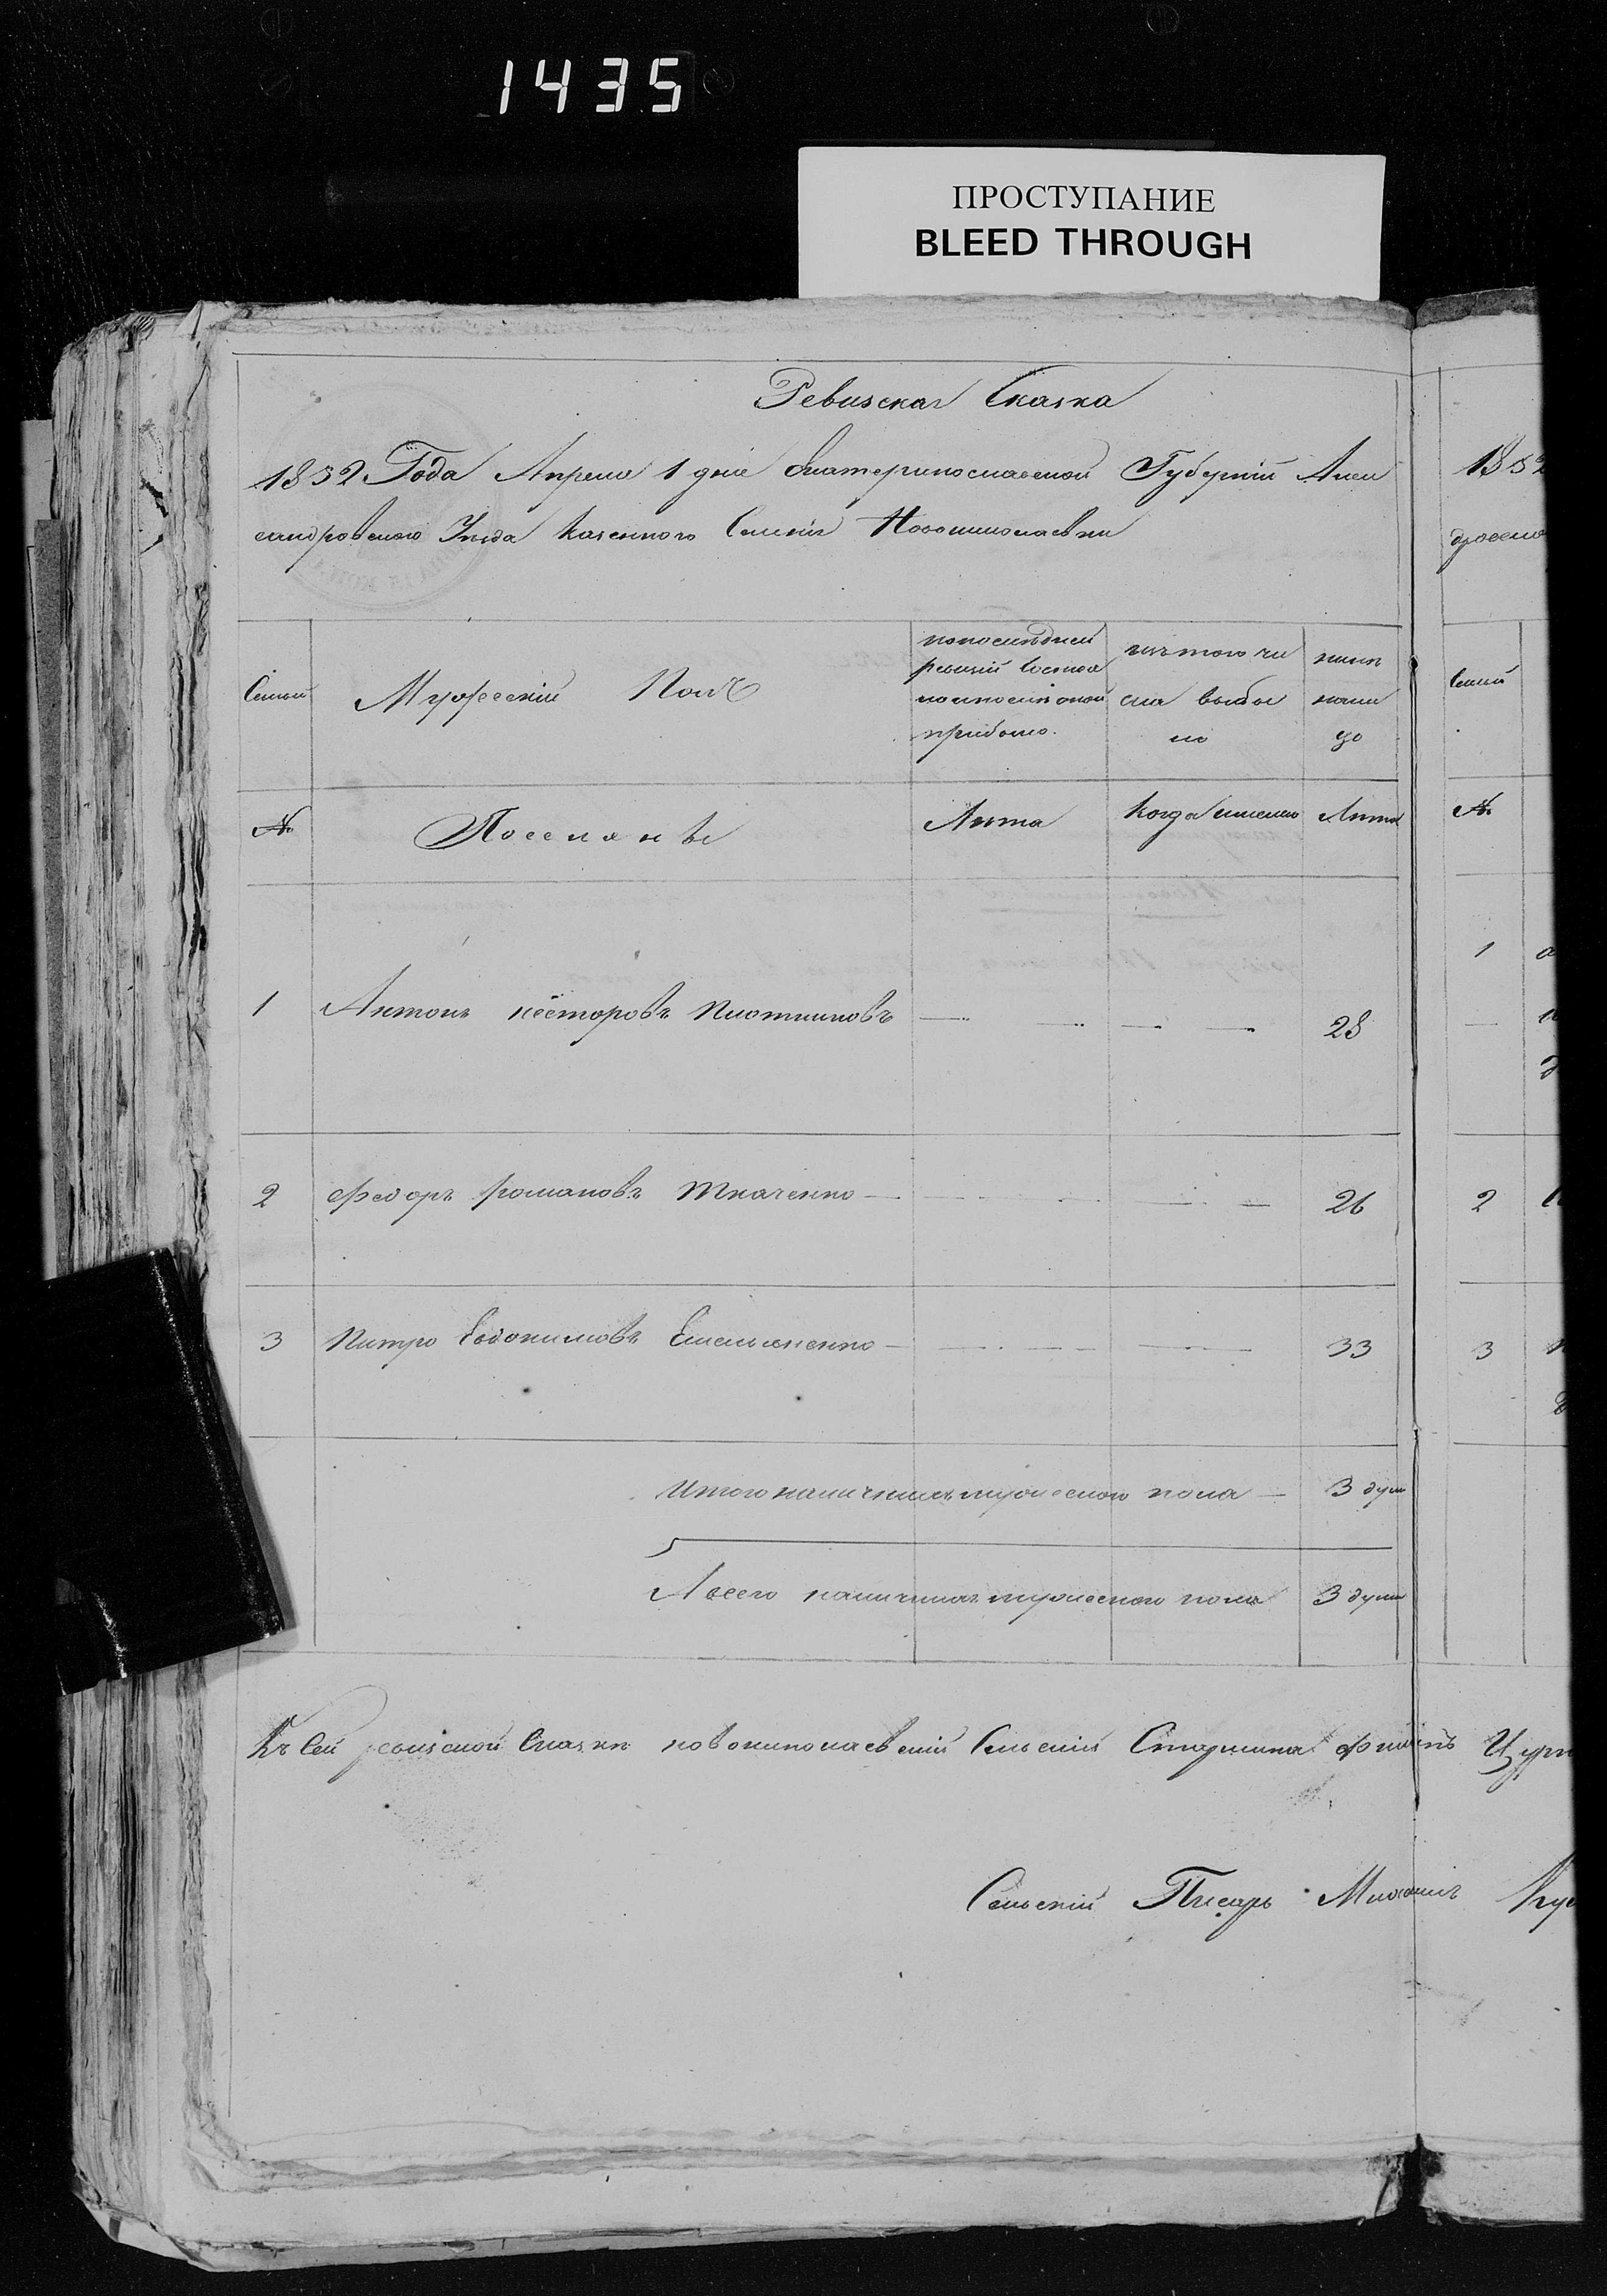 1435
ПРОСТУПАНИЕ
BLEED THROUGH
Ревизская Сказка
1852 Года Апреля 1 дня Екатеринославской Губерніи Алек
сандровского Уезда Казенного Селенія Новониколаевки
1852
Семьи
Мужескій Полъ
по последней
ревизій состоя
ло и после оной
прибыло.
изъ того чи
сла выбы
ло
ныне
нали
цо
Семьи
№
Поселяне
Лета
Когда именно
Лета
№
1 Антонъ несторовъ Плотниковъ 28
1
2 Федоръ романовъ Ткаченко 26
2
3 Питро Евдокимовъ Емельяненко 33
3
Итого наличныхъ мужескаго пола 3 душ
А всего наличныхъ мужеского пола 3 души
Къ сей ревизской Сказки новониколаевскій Сельскій Старшина Филипъ
Сельскій Писарь Михаилъ